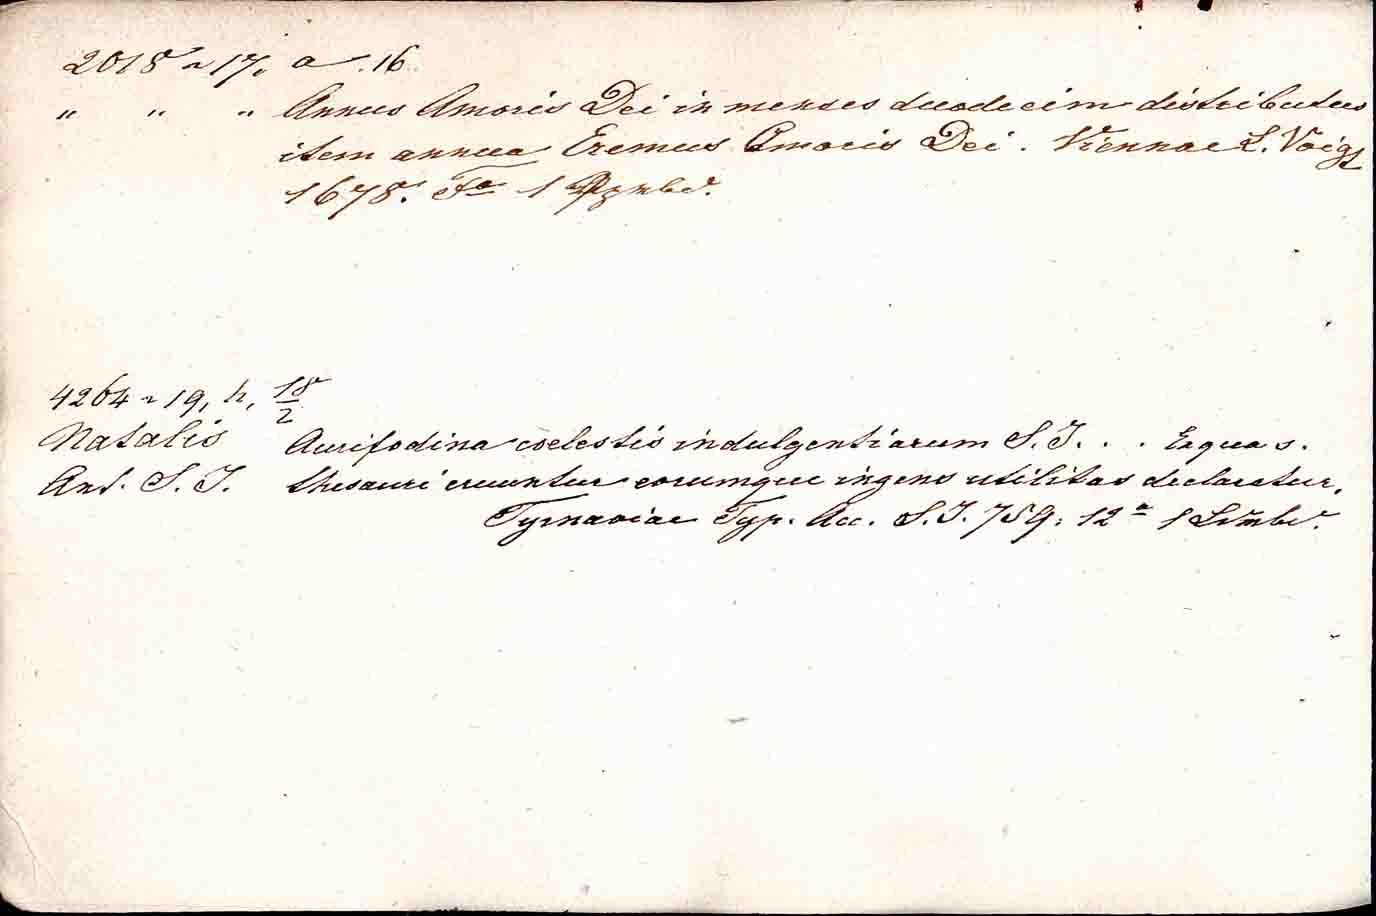 2018 ~ 17. a .16.
" " " Annus Amoris Dei in menses duodecim distributus
item annua Eremus Amoris Dei. Viennae L. Voigt
1678. Fo 1
4264 ~ 19, h, 18/2
Natalis Aurifodina coelestis indulgentiarum S. J. . . Ex qua s.
Ant. S. J. thesauri eruuntur eorumque ingens utilitas declaratur.
Tyrnaviae Typ. Acc. S. J. 759. 12a 1